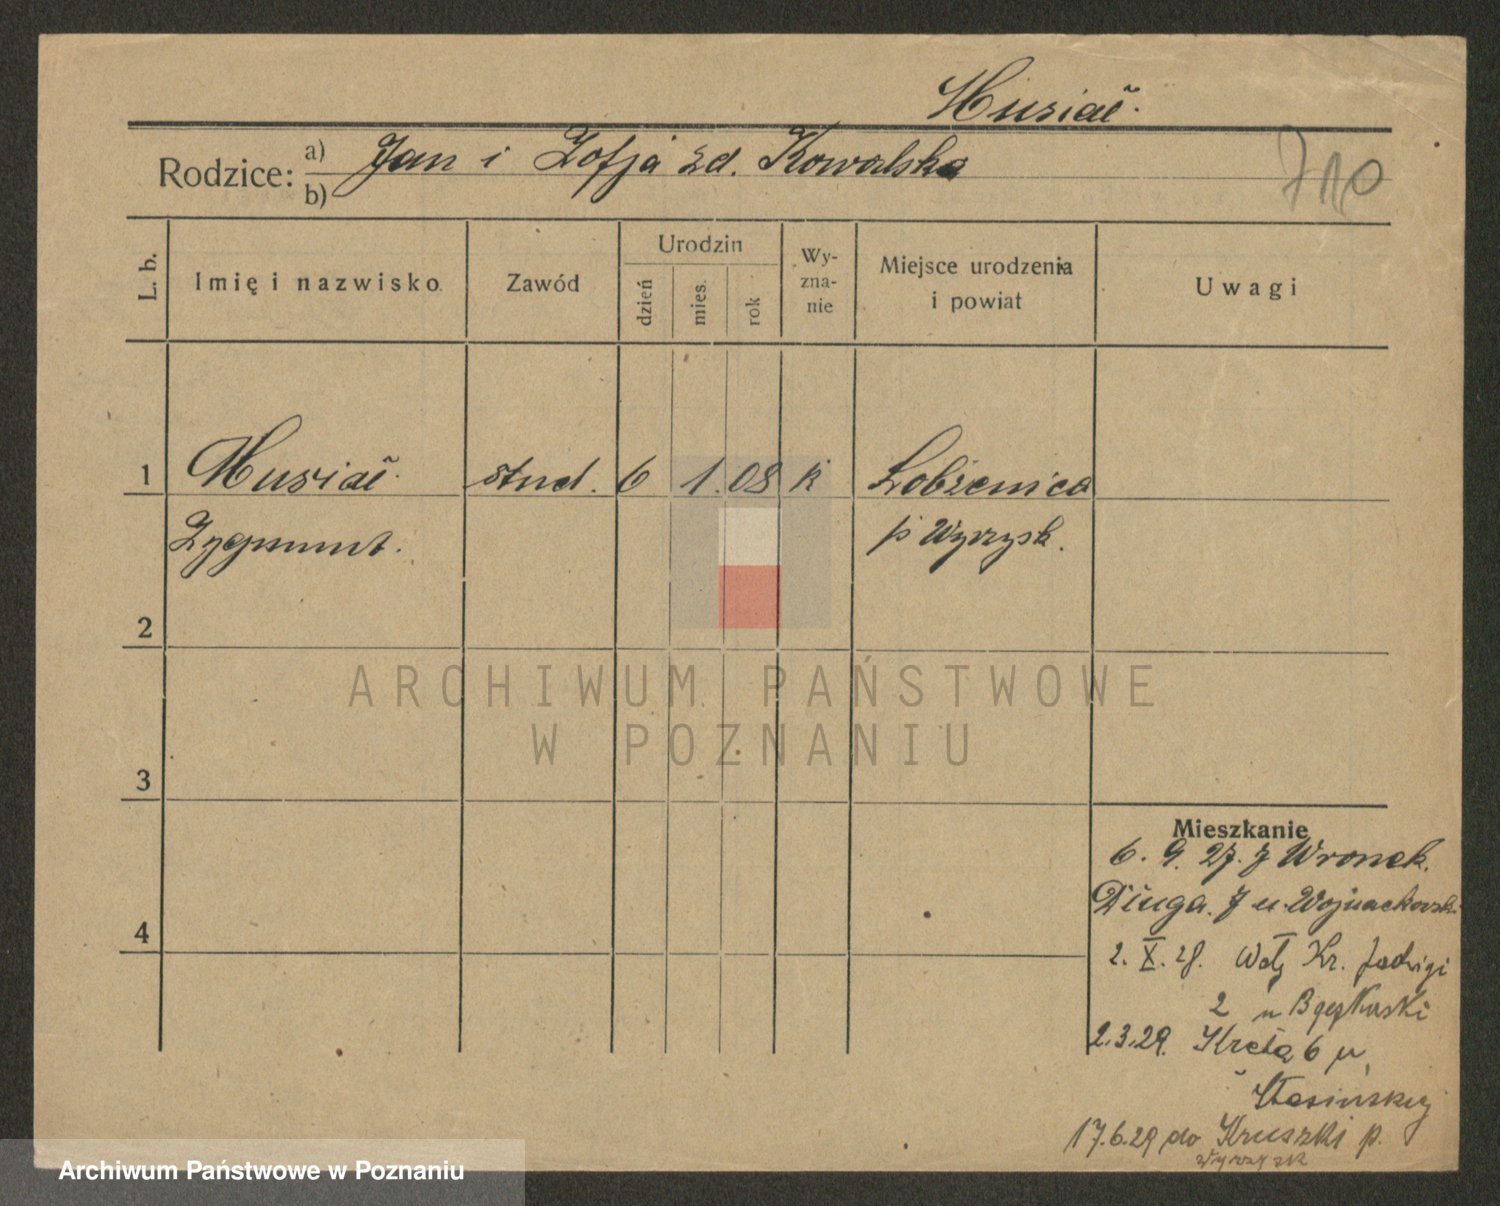 Musiał.
Rodzice: a) Jan i Zofja zd. Kowalska
b)
710
L. b. Imię i nazwisko. Zawód Urodzin dzień mies. rok Wy-zna-nie Miejsce urodzenia i powiat Uwagi
1 Musiał. stud. 6 1. 08 k Łobżenica
Zygmunt. p. Wyrzysk.
2
ARCHIWUM PAŃSTWOWE
W POZNANIU
3
Mieszkanie
6. 9. 27. z Wronek.
Długa. 7 u.
4
2. X. 28. Wały Kr. Jadwigi
2 u
2.3.29. Kręta 6 u
17.6.29 do Kruszki p.
Wyrzysk
Archiwum Państwowe w Poznaniu